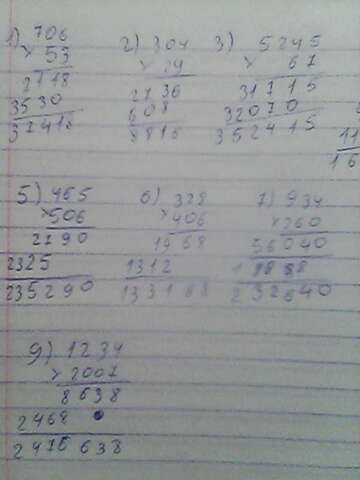 1) 706
× 53
2118
3530
37418
2) 304
× 29
2736
608
8816
3) 5245
× 67
31715
32070
352415
11
16
5) 465
×506
2790
2325
235290
6) 328
×406
1968
1312
133168
7) 934
×260
56040
1868
9) 1234
× 2007
8638
2468
2476638